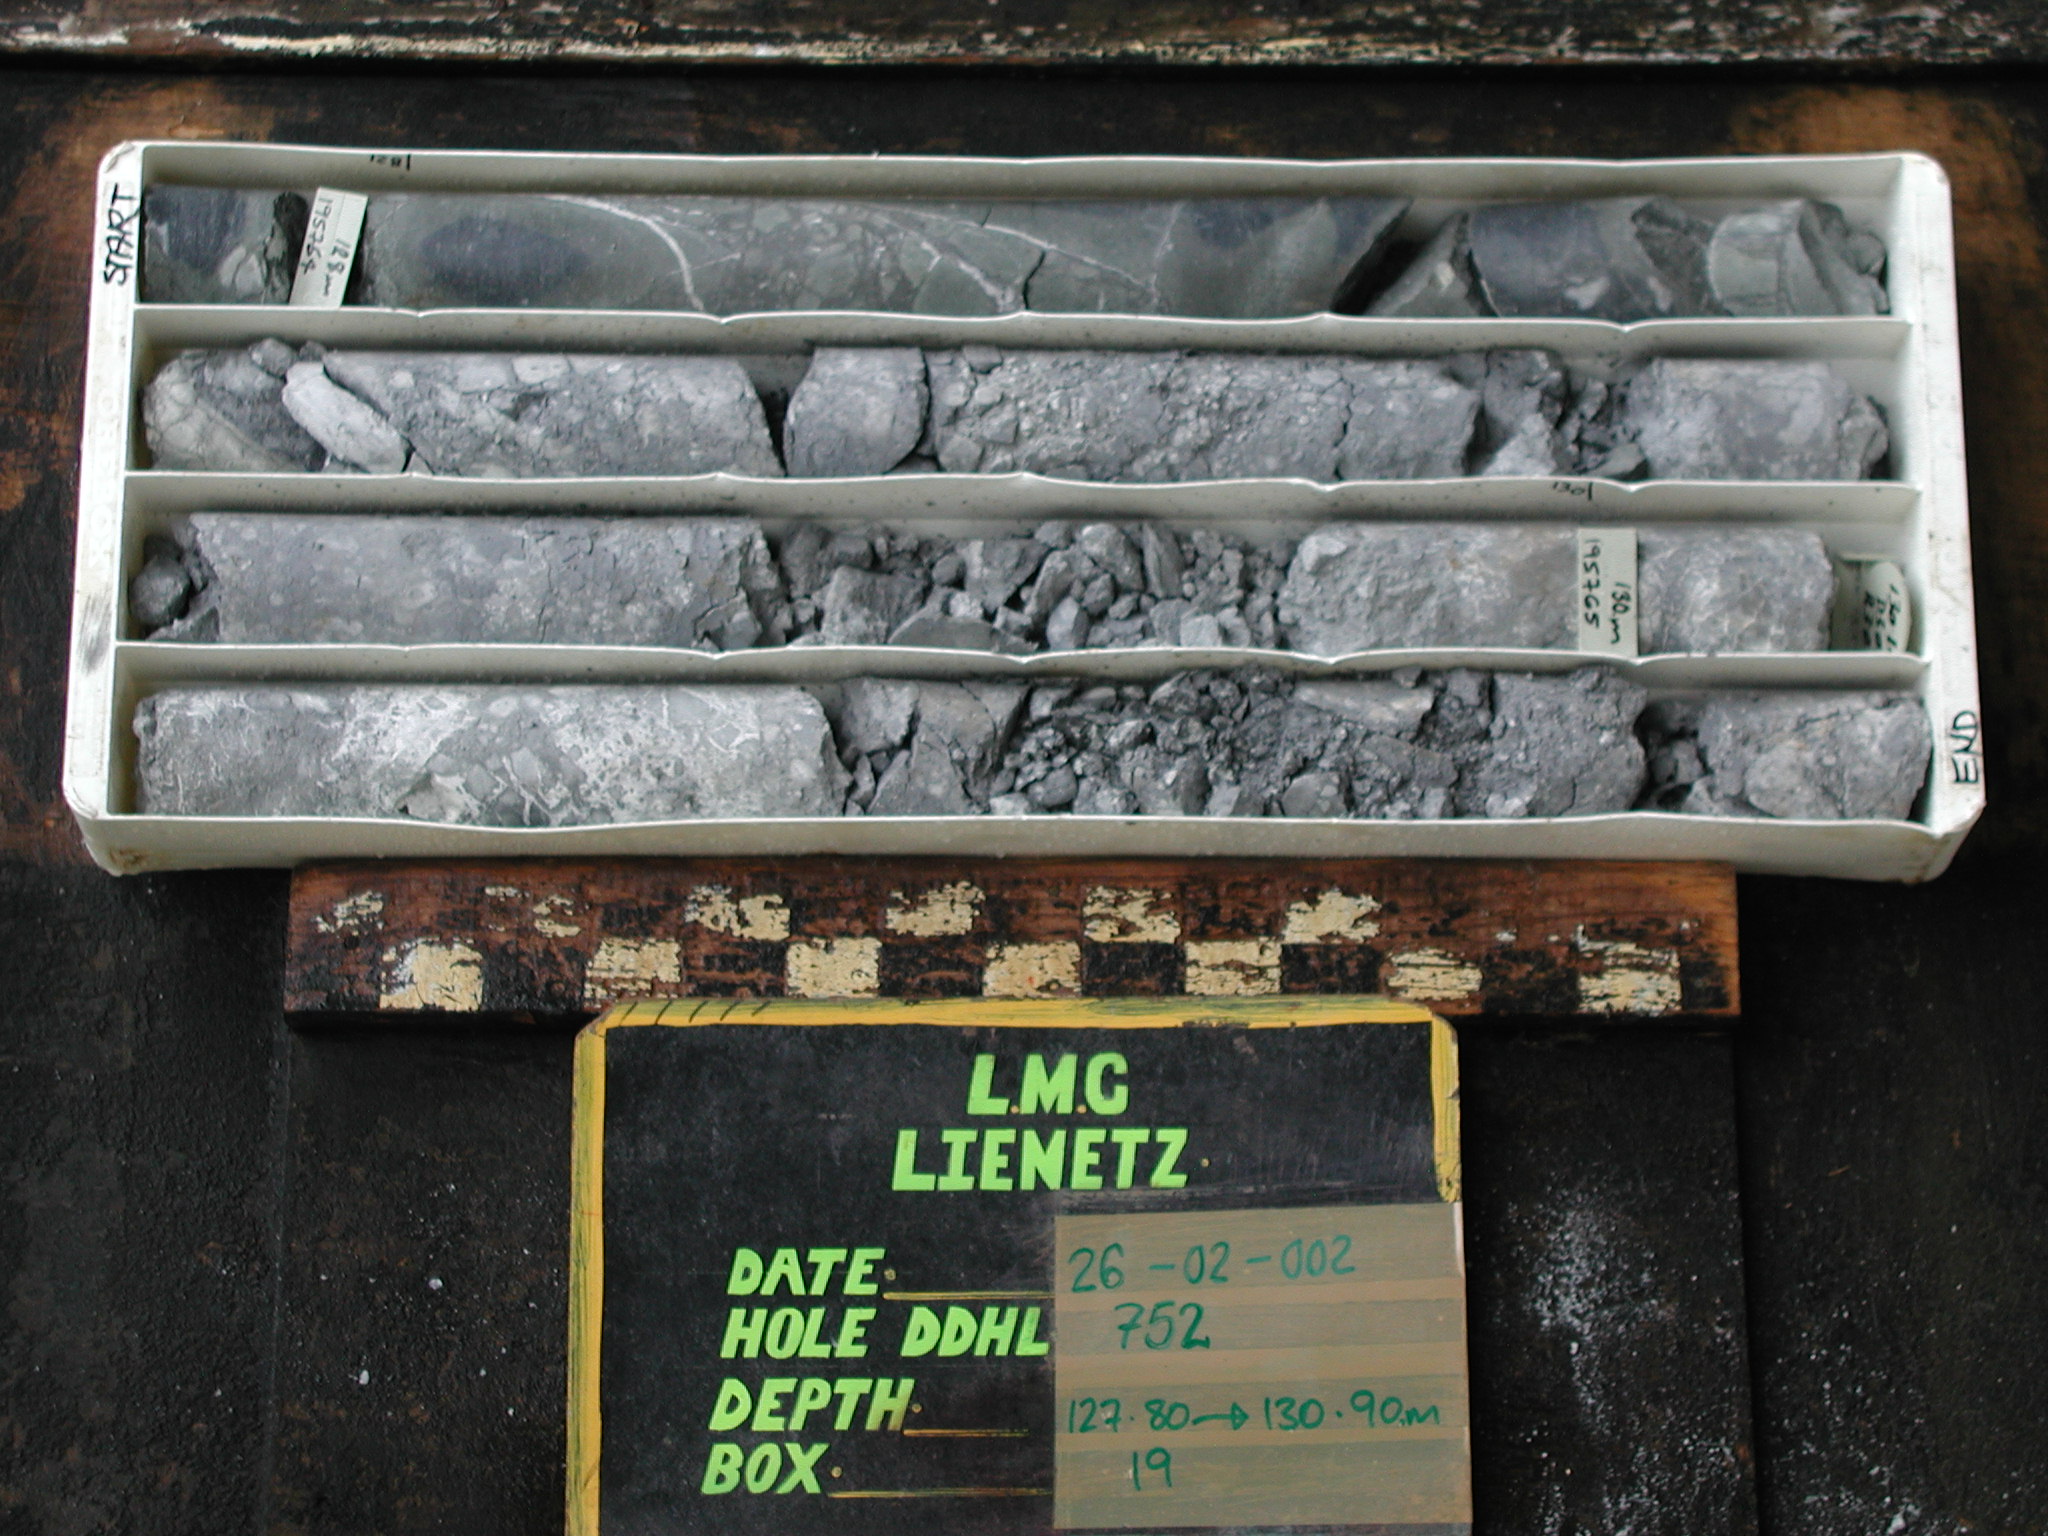 START
128m
195764
130
130m
195765
END
L.M.C
LIENETZ.
DATE. 26-02-002
HOLE DDHL 752
DEPTH. 127.80→130.90m
BOX. 19